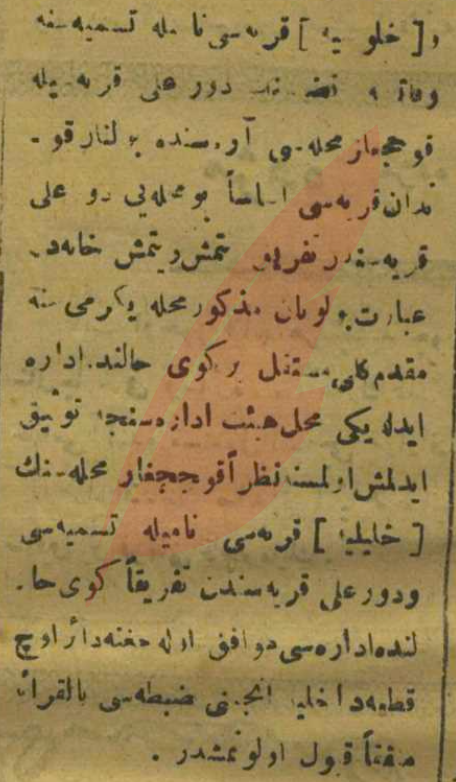 و [ خلو یه ] قریه‌سی نامیله تسمیه‌سنه
دور علی قریه‌سیله
قوججغاز محله‌سی آره‌سنده بولنان قو -
ندان قریه‌سی اساساً بو محله‌یی دور علی
قریه‌سندن تفریق یتمش خانه‌دن
عبارت بولونان مذکور محله یکرمی سنه
مقدم کبی مستقل بر کوی حالنده اداره
ایدله‌یکی محل هیئت اداره‌سنجه توثیق
ایدلمش اولمسنه نظراً قوججغاز محله‌سنك
[ خلیلیه ] قریه‌سی نامیله تسمیه‌سی
و دور علی قریه‌سندن تفریقاً کوی حا -
لنده اداره‌سی موافق اوله‌جغنه دائر اوچ
قطعه داخلیه انجمنی ضبطه‌سی بالقرائه
متفقاً قبول اولونمشدر .